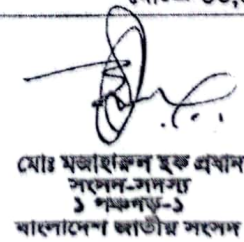 মোঃ মজাহারুল হক প্রধান
সংসদ-সদস্য
১ পঞ্চগড়-১
বাংলাদেশ জাতীয় সংসদ